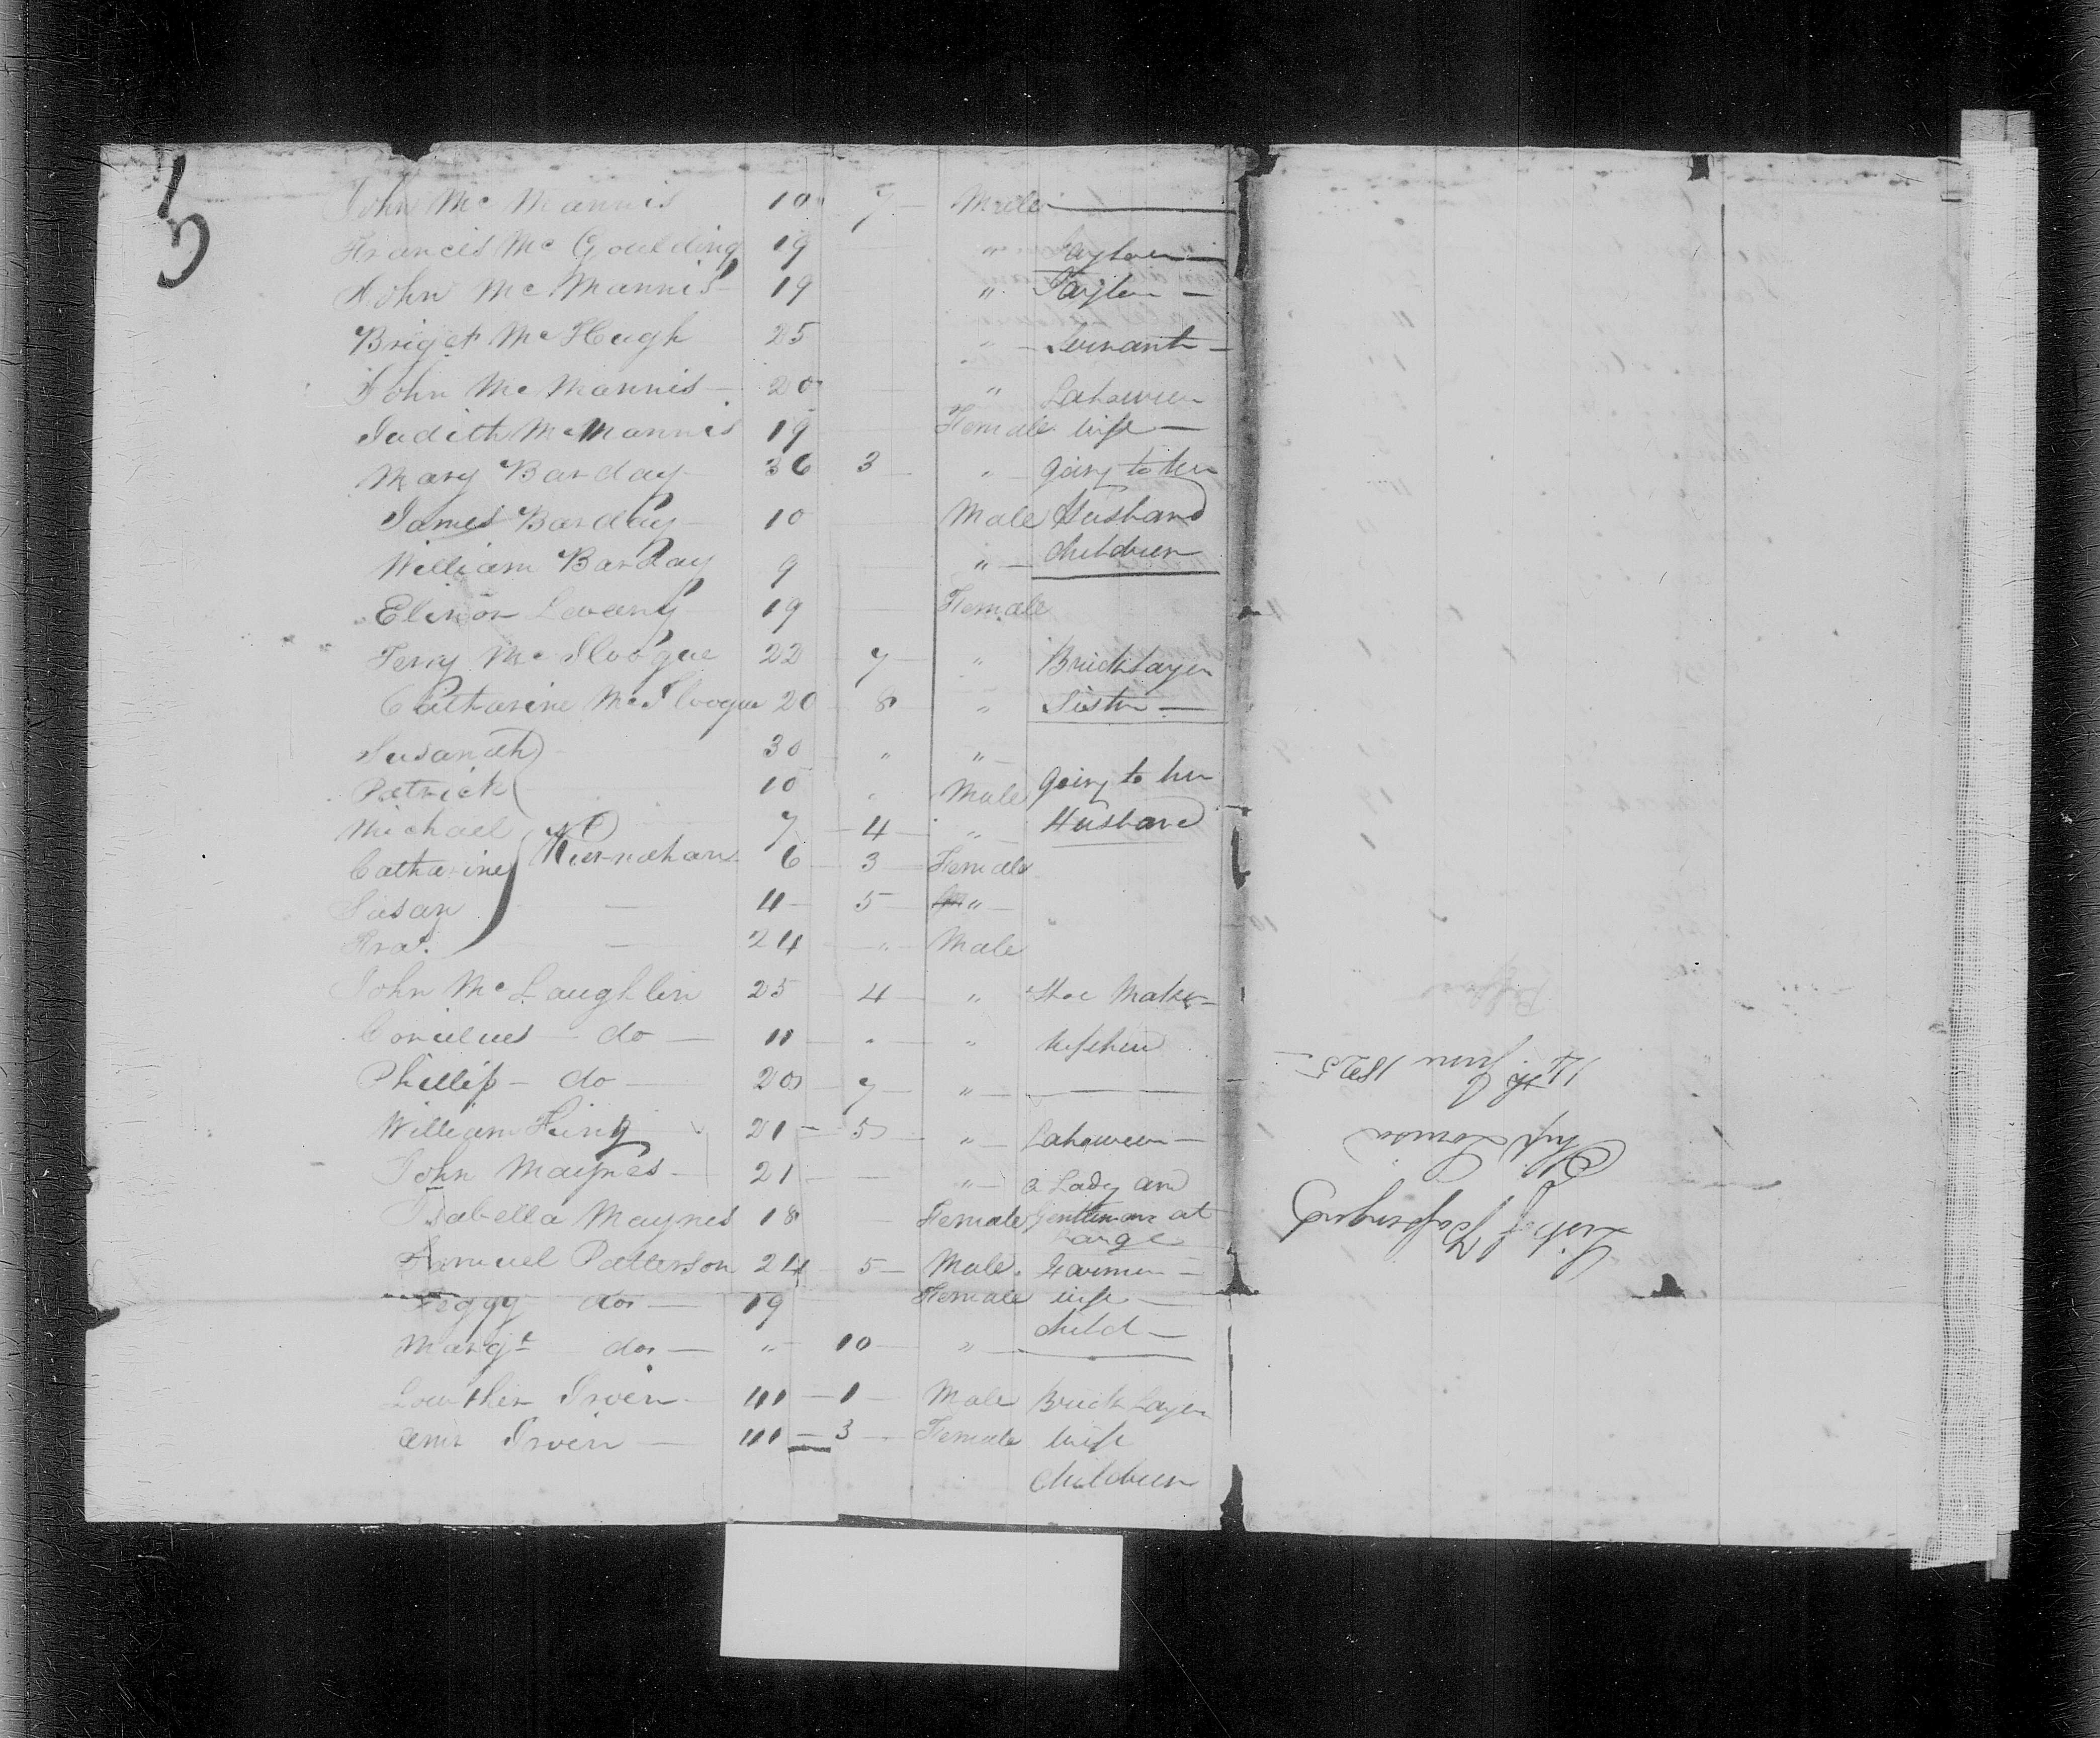 5
John Mc Mannis 10 7 Male
Francis Mc Goulding 19 "
John Mc Mannis 19 " Taylor
Briget Mc Hugh 25 " Servant
John Mc Mannis 20 " Labourer
Judith Mc Mannis 19 Female wife
Mary Barday 36 3 " going to her
James Barday 10 Male Husband
William Barday 9 " children
Elinor 19 Female
Terry Mc 22 7 " Brick Layer
Catharine Mc 20 8 " Sister
Susanah 30 " "
Patrick 10 " Male going to her
Michael 7 4 " Husband
Catharine Kernahan 6 3 Female
Susan 4 5 "
Pra. 24 " Male
John Mc Laughlin 25 4 " Shoe Maker
do 11 " "
Phillip do 20 7 "
William King 21 5 " Labourer
John Maynes 21 " a Lady and
Isabella Maynes 18 Female Gentleman at
Large
Samuel Patterson 24 5 Male Farmer
Peggy do 19 Female wife
Margt do " 10 " child
Lowther Irvin 1 Male Brick Layer
Irvin 3 Female wife
children
List of Passengers
Ship Louisa
14th June 1825